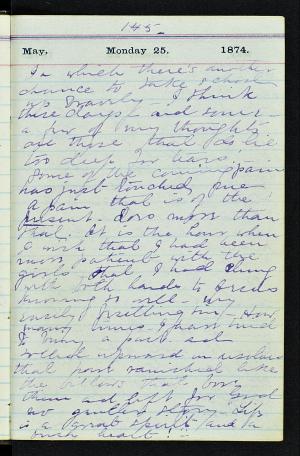 145.
May, Monday 25. 1874.
In which there's another
chance to take school
up bravely - I think
these days - and some
a few of my thoughts
are those that do lie
too deep for tears.
Some of the coming pain
has just touched me
A pain that is of the
present - more than
that. It is the hour when
I wish that I had been
more patient with the
girls that I had clung
with both hands to
so well - my
easily besetting sin - How
many times I have tried
to
upward in
that have vanished like
the billows that bore
them and left for good
no . Life
is a great spirit and a
heart! -